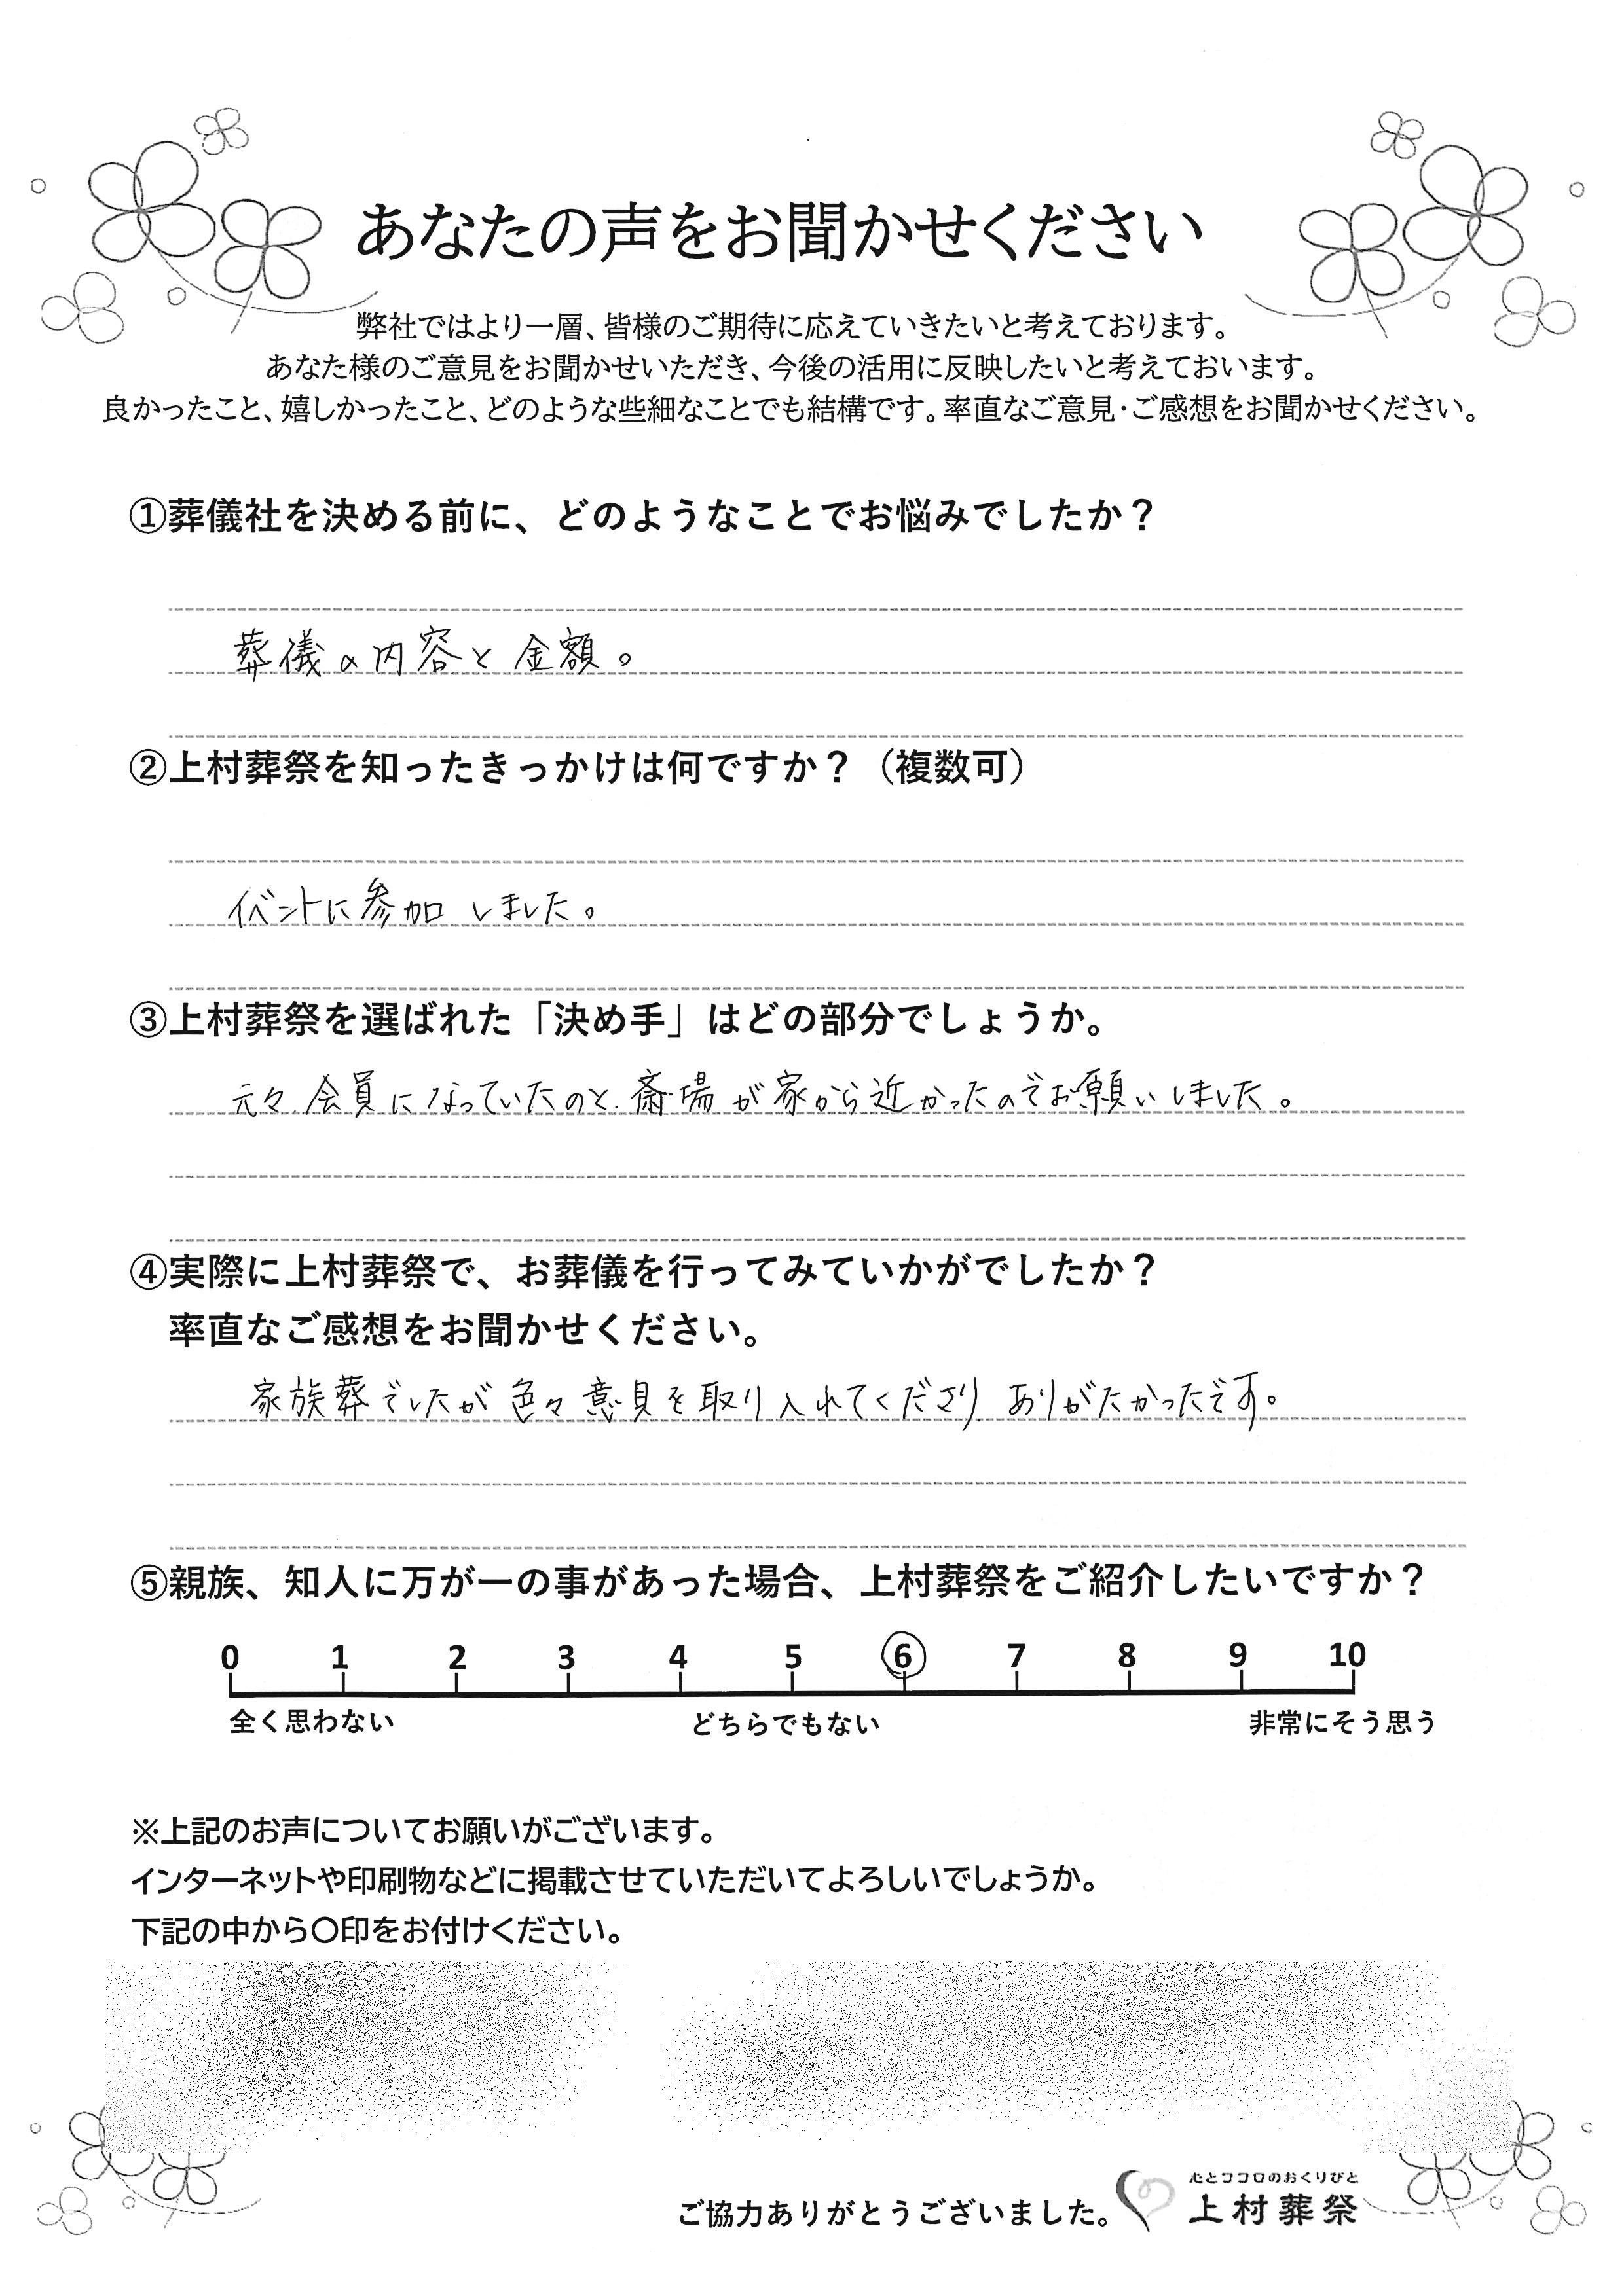 あなたの声をお聞かせください
弊社ではより一層、皆様のご期待に応えていきたいと考えております。
あなた様のご意見をお聞かせいただき、今後の活用に反映したいと考えておいます。
良かったこと、嬉しかったこと、どのような些細なことでも結構です。率直なご意見・ご感想をお聞かせください。
①葬儀社を決める前に、どのようなことでお悩みでしたか？
葬儀の内容と金額。
②上村葬祭を知ったきっかけは何ですか？（複数可）
イベントに参加しました。
③上村葬祭を選ばれた「決め手」はどの部分でしょうか。
元々会員になっていたのと、斎場が家から近かったのでお願いしました。
④実際に上村葬祭で、お葬儀を行ってみていかがでしたか？
率直なご感想をお聞かせください。
家族葬でしたが色々意見を取り入れてくださりありがたかったです。
⑤親族、知人に万が一の事があった場合、上村葬祭をご紹介したいですか？
0 1 2 3 4 5 6 7 8 9 10
全く思わない どちらでもない 非常にそう思う
※上記のお声についてお願いがございます。
インターネットや印刷物などに掲載させていただいてよろしいでしょうか。
下記の中から〇印をお付けください。
心とココロのおくりびと
ご協力ありがとうございました。 上村葬祭